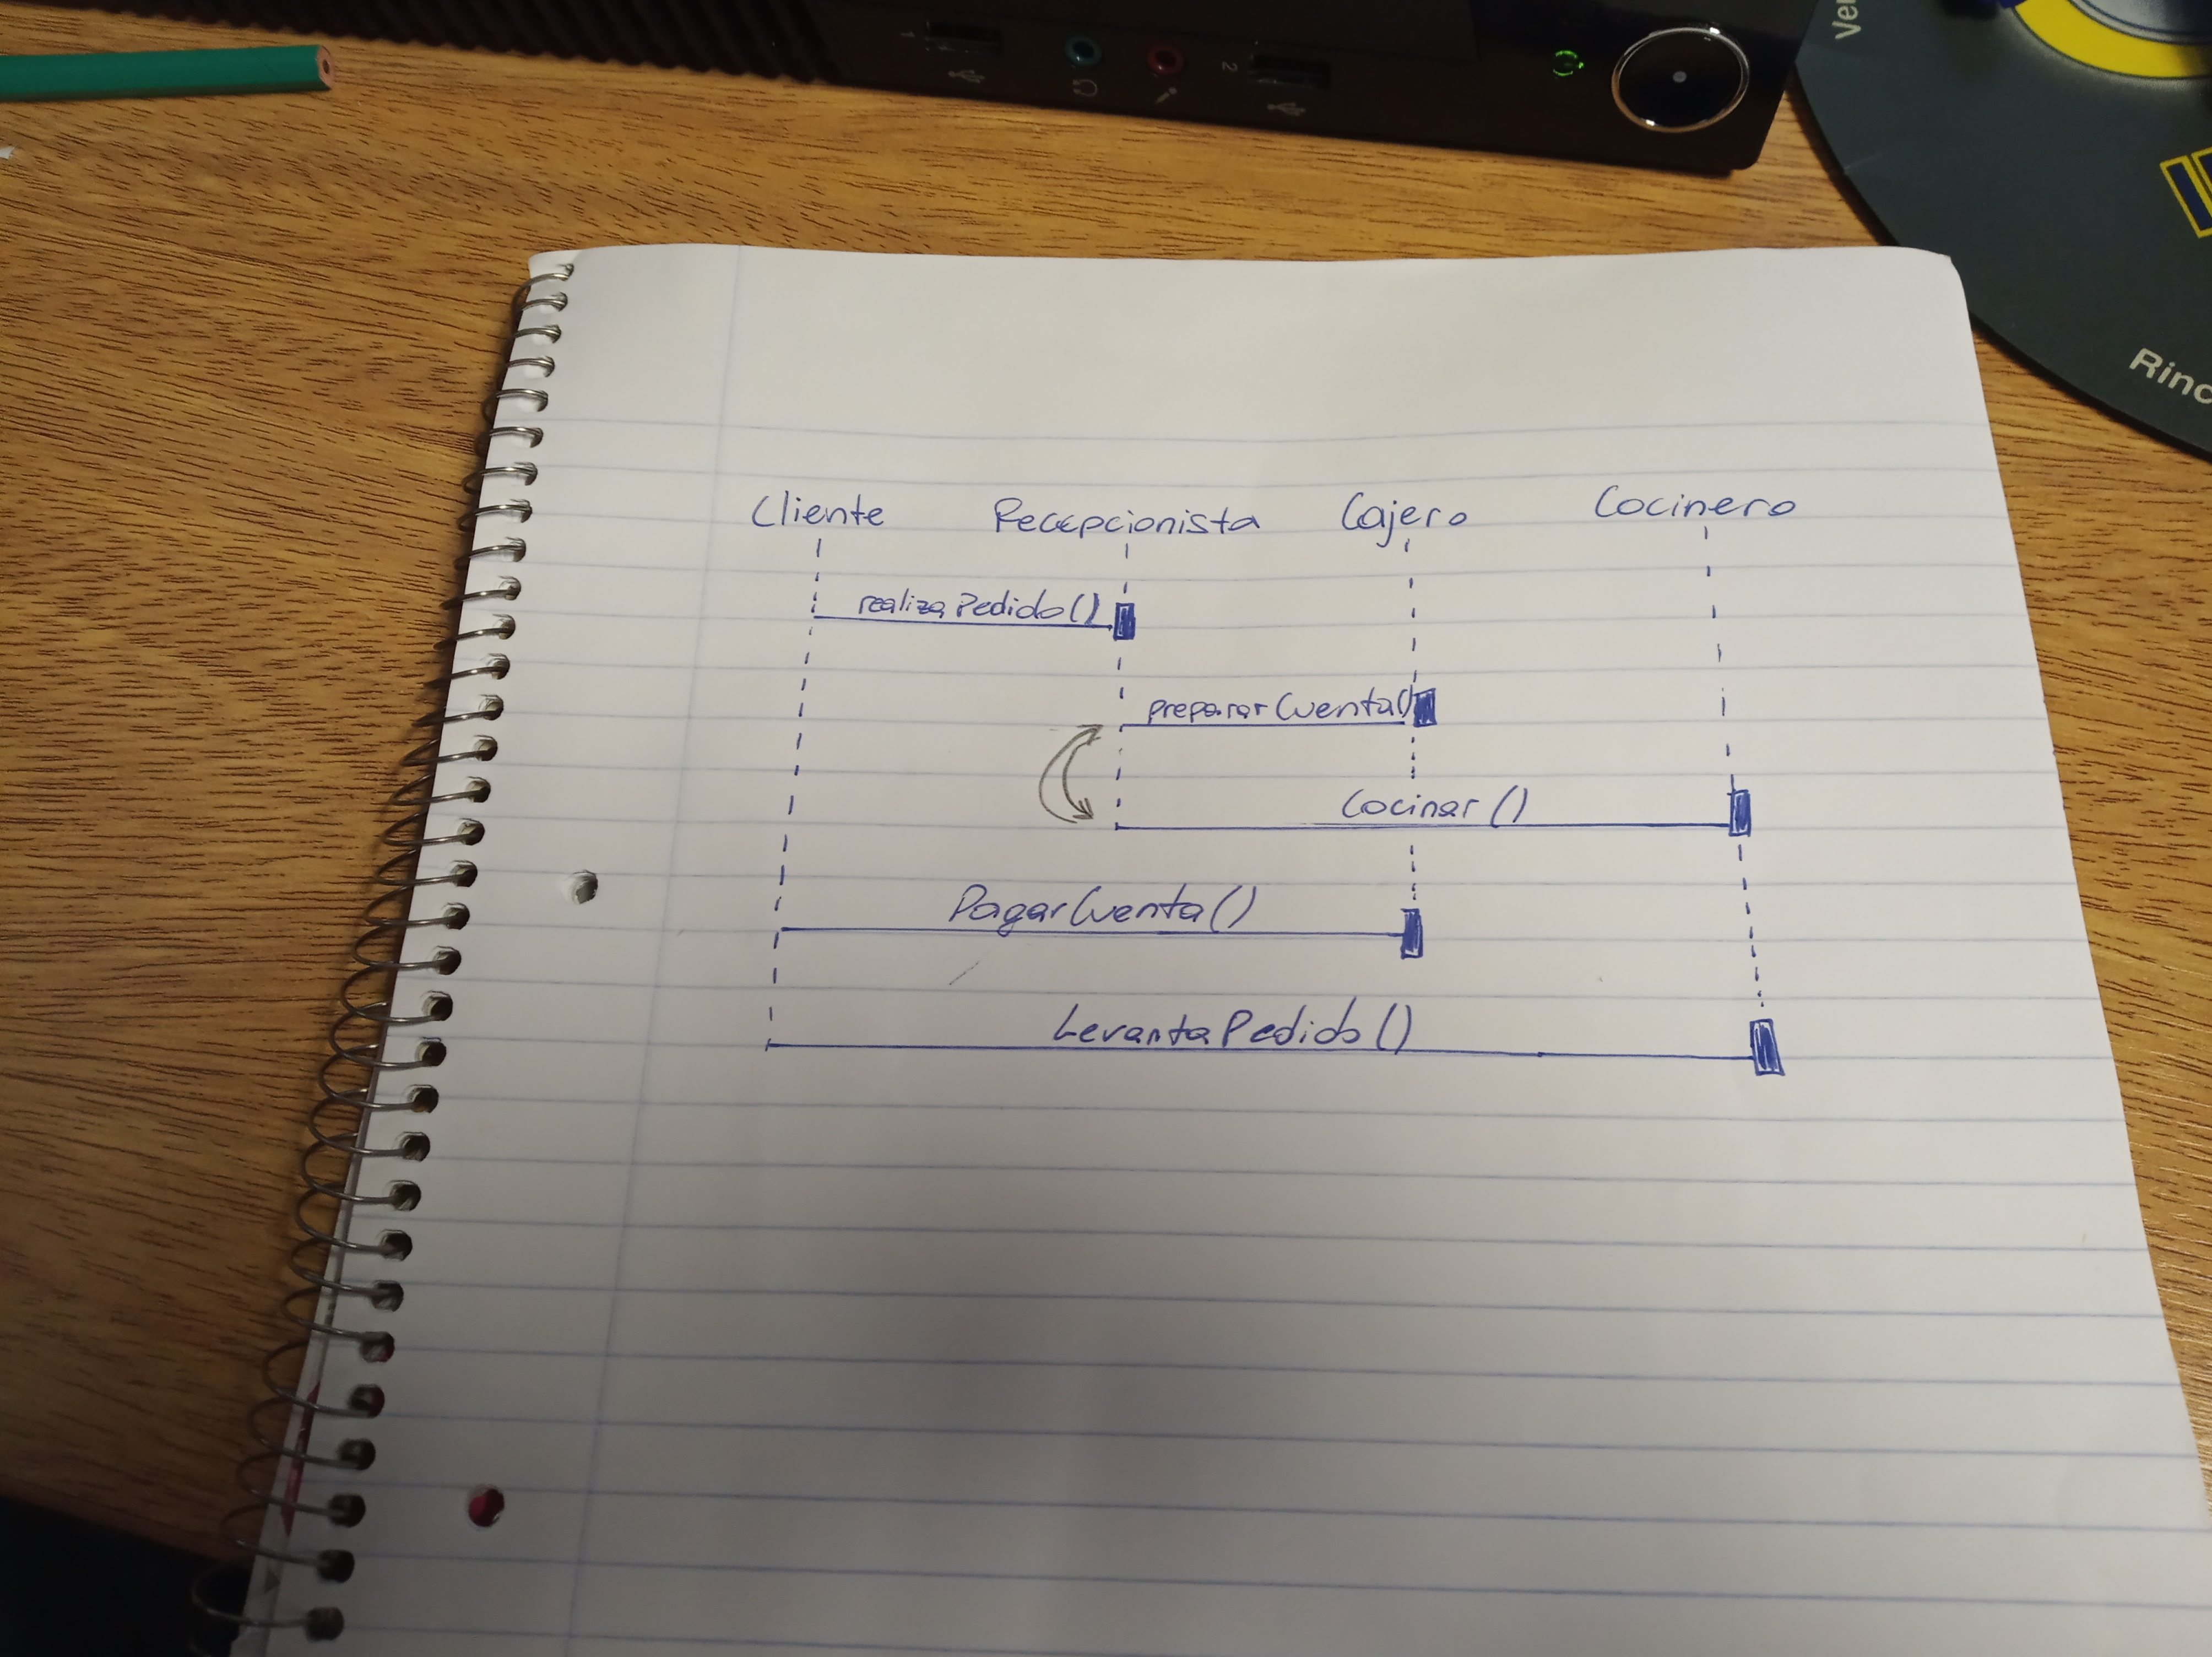 Cliente Recepcionista Cajero Cocinero
realizaPedido()
prepararCuenta()
Cocinar()
PagarCuenta()
LevantaPedido()
1
2
Rinc
Ver